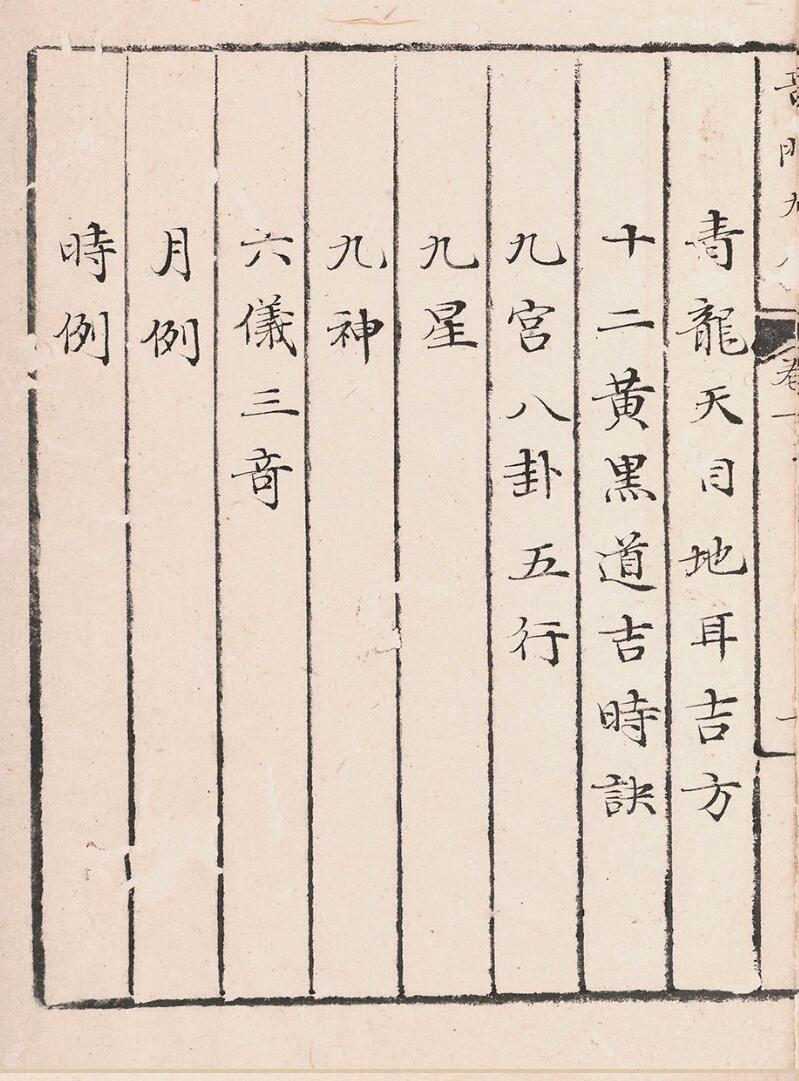 青龍天目地耳吉方
十二黃黒道吉時訣
九宮八卦五行
九星
九神
六儀三竒
月例
時例
卷一